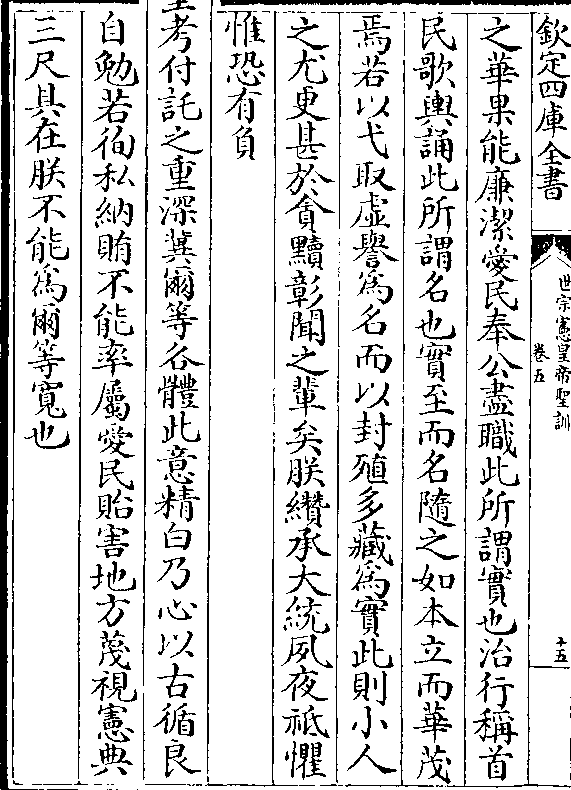 欽定四庫全書
世宗憲皇帝聖訓
卷五
十五
之華果能廉潔愛民奉公盡職此所謂實也治行稱首
民歌輿誦此所謂名也實至而名隨之如本立而華茂
焉若以弋取虛譽為名而以封殖多藏為實此則小人
之尤更甚於貪黷彰聞之輩矣朕纘承大統夙夜祗懼
惟恐有負
聖考付託之重深冀爾等各體此意精白乃心以古循良
自勉若徇私納賄不能率屬愛民貽害地方蔑視憲典
三尺具在朕不能為爾等寬也